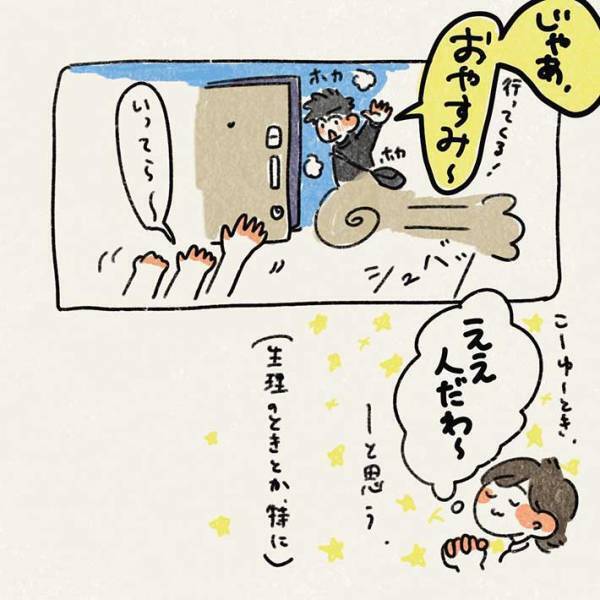 じゃあ、
おやすみ〜
行ってくる!
ホカ
ホカ
いってら〜
シュバッ
こーゆーとき、
ええ
人だわ〜
ーと思う。
(生理のときとか、特に)